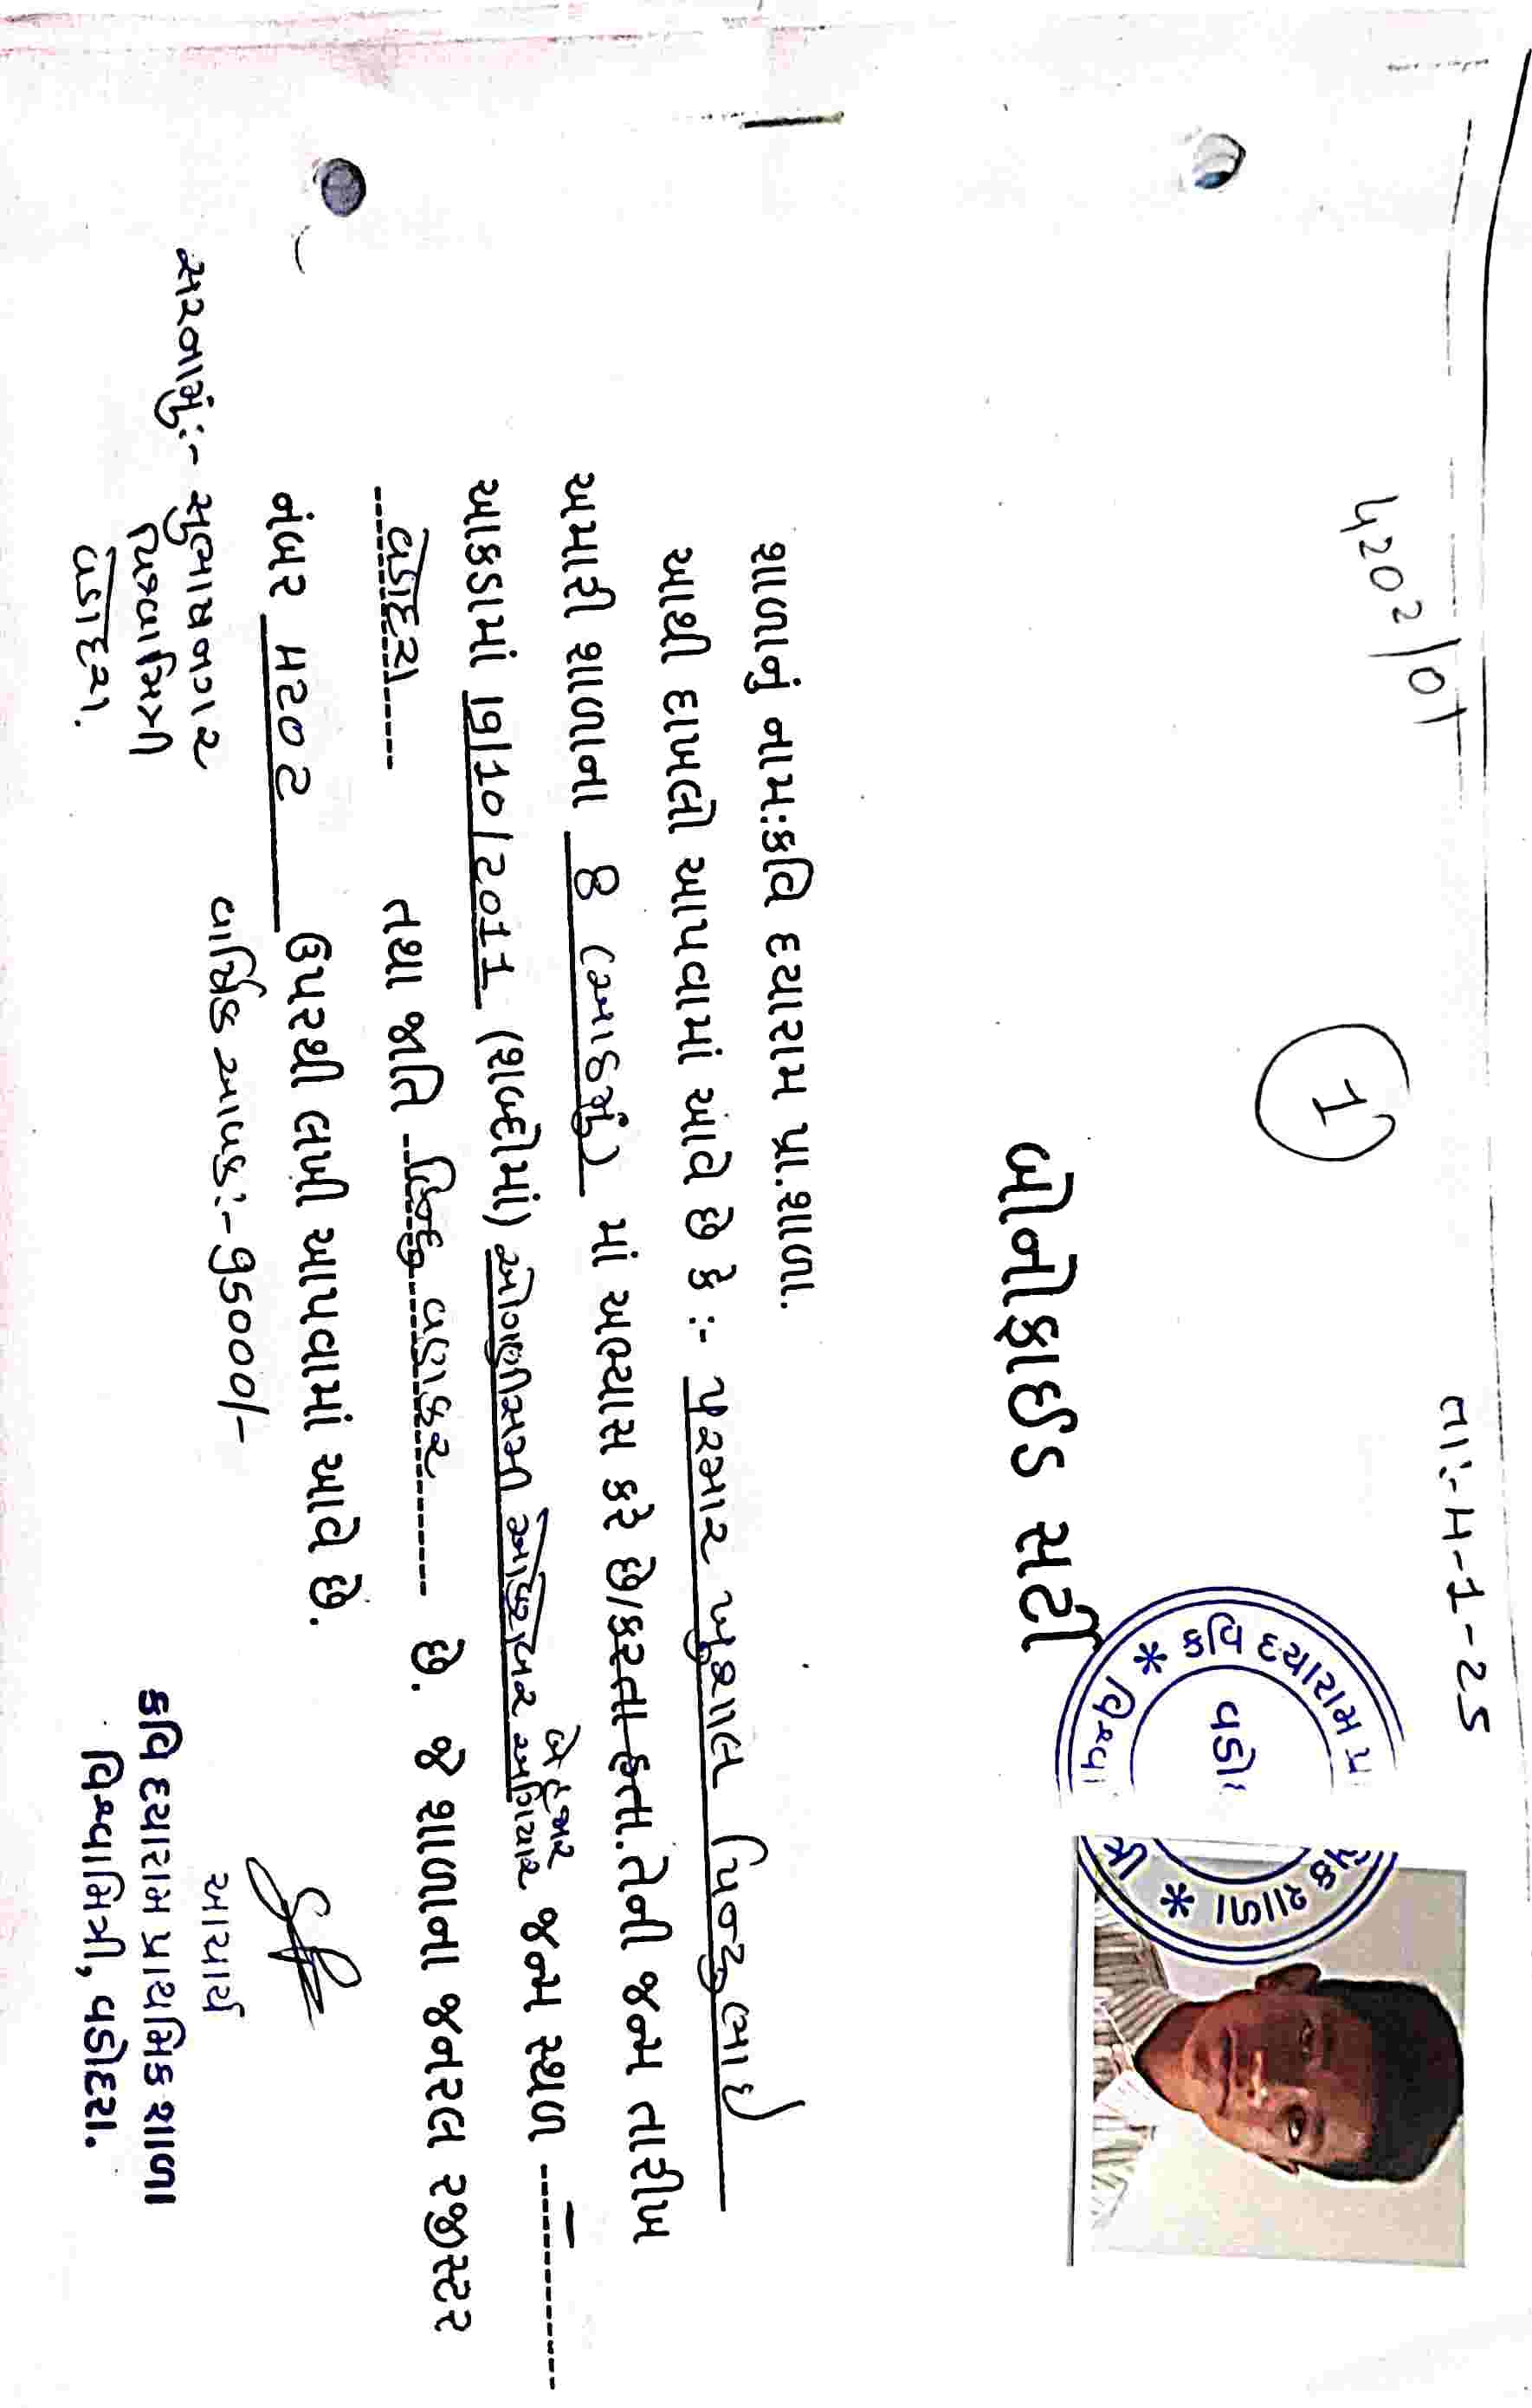 5202/01
1
તા:-૫-1-25
બોનોફાઈડ સર્ટી
* કવિ દયારામ પ્રા
શાળા *
વડો
શાળાનું નામ:કવિ દયારામ પ્રા.શાળા.
આથી દાખલો આપવામાં આવે છે કે :- પરમાર ખુશાલ પિન્ટુભાઈ
અમારી શાળાના 8 (આઠમું) માં અભ્યાસ કરે છે/કરતા હતા.તેની જન્મ તારીખ
આકડામાં 19/10/2011 (શબ્દોમાં) ઓગણીસમી ઓક્ટોબર બે હજાર અગિયાર જન્મ સ્થળ -
વડોદરા તથા જાતિ હિન્દુ વણકર છે. જે શાળાના જનરલ રજીસ્ટર
નંબર ૫૨૦૨ ઉપરથી લખી આપવામાં આવે છે.
સરનામું:- સુભાષનગર
વિશ્વામિત્રી
વડોદરા.
વાર્ષિક આવક:- ૭૬૦૦૦/-
આચાર્ય
કવિ દયારામ પ્રાથમિક શાળા
વિશ્વામિત્રી, વડોદરા.